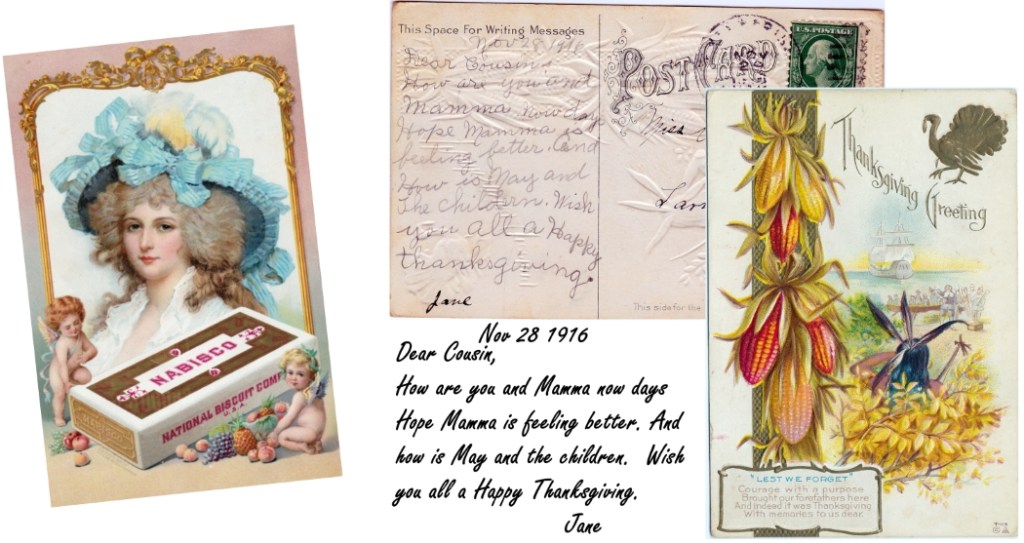 NABISCO
NATIONAL BISCUIT COMP
U.S.A.
This Space For Writing Messages
Nov 28/16
Dear Cousin,
How are you and
Mamma now days
Hope Mamma is
feeling better. and
How is May and
The children. Wish
you all a Happy
thanksgiving.
Jane
POST CARD
U.S. POSTAGE
Miss
This side for the
Nov 28 1916
Dear Cousin,
How are you and Mamma now days
Hope Mamma is feeling better. And
how is May and the children. Wish
you all a Happy Thanksgiving.
Jane
Thanksgiving
Greeting
"LEST WE FORGET"
Courage with a purpose
Brought our forefathers here
And indeed it was Thanksgiving
With memories to us dear.